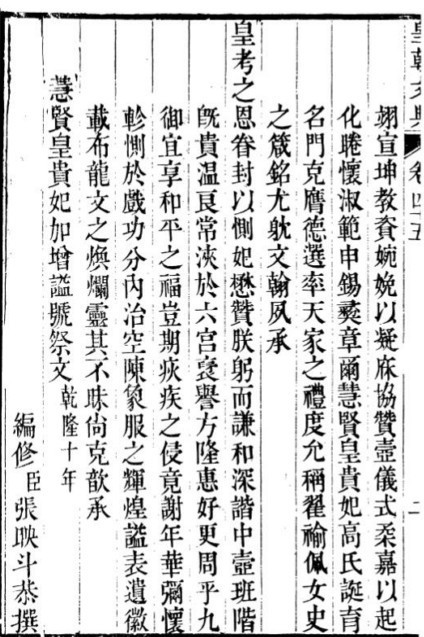 皇朝文典 卷四十五 二
翊宣坤教資婉娩以凝庥協贊壼儀式柔嘉以起
化睠懷淑範申錫彝章爾慧賢皇貴妃高氏誕育
名門克膺德選率天家之禮度允稱翟褕佩女史
之箴銘尤躭文翰夙承
皇考之恩眷封以側妃懋贊朕躬而謙和深諧中壼班階
旣貴溫良常浹於六宮裦譽方隆惠好更周乎九
御宜享和平之福豈期疢疾之侵竟謝年華彌懷
軫惻於戲功分內治空陳象服之輝煌謚表遺徽
載布龍文之煥爛靈其不昧尙克歆承
慧賢皇貴妃加增謚號祭文 乾隆十年
編修臣張映斗恭撰